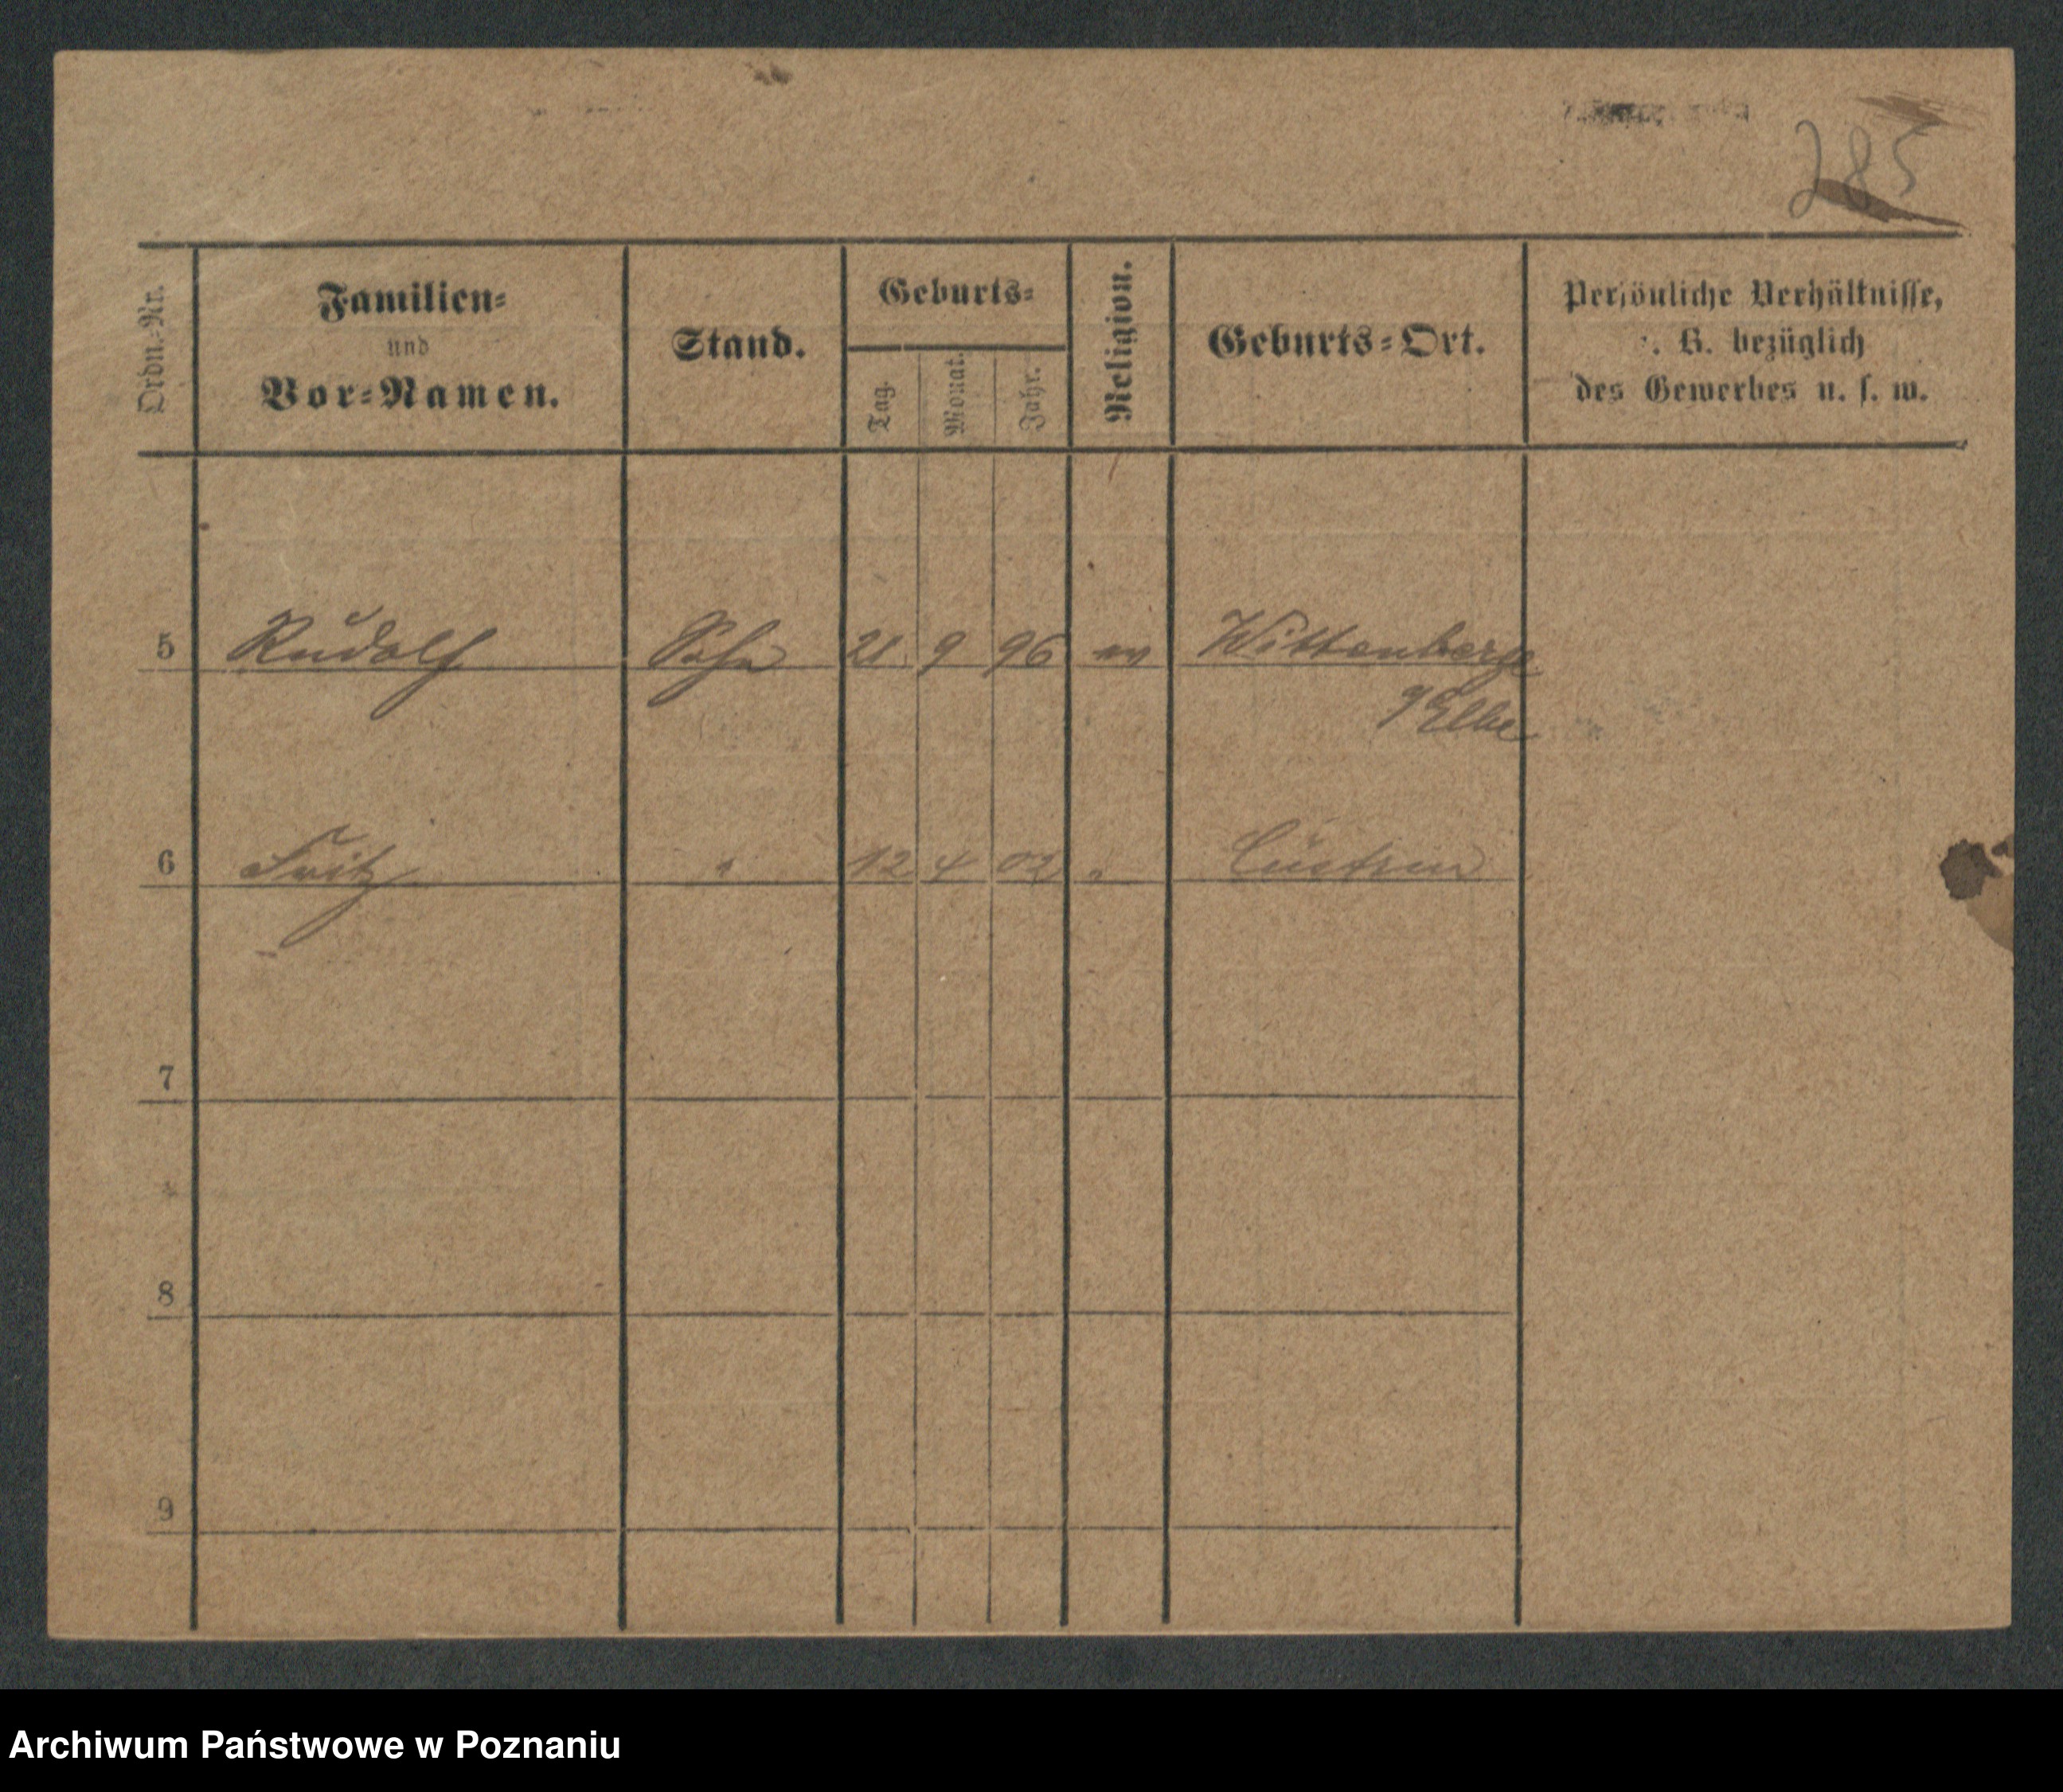 285
Ordn.-Nr.
Familien-
und
Vor-Namen.
Stand.
Geburts-
Tag.
Monat.
Jahr.
Religion.
Geburts-Ort.
Persönliche Verhältnisse,
z. B. bezüglich
des Gewerbes u. s. w.
5 Rudolf Sohn 21 9 96 ev Wittenberge
Elbe
6 Fritz " 12 4 02 " Cüstrin
7
8
9
Archiwum Państwowe w Poznaniu